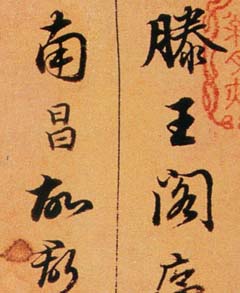 滕王阁序
南昌故郡